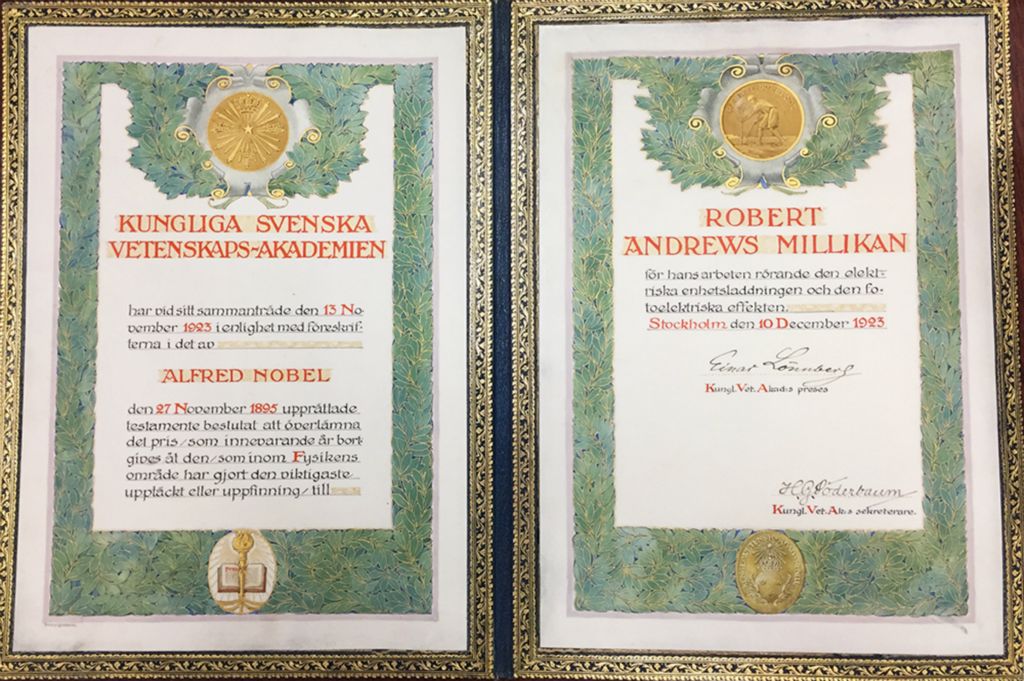 KUNGLIGA SVENSKA
VETENSKAPS-AKADEMIEN
har vid sitt sammanträde den 13 No-
vember 1923 i enlighet med föreskrif-
terna i det av
ALFRED NOBEL
den 27 November 1895 upprättade
testamente beslutat att överlämna
det pris/som innevarande år bort-
gives åt den/som inom Fysikens
område har gjort den viktigaste
upptäckt eller uppfinning/till
ROBERT
ANDREWS MILLIKAN
för hans arbeten rörande den elekt-
riska enhetsladdningen och den fo-
toelektriska effekten.
Stockholm den 10 December 1923
Einar Lönnberg
Kungl. Vet. Akad:s preses
H G Söderbaum
Kungl. Vet. Ak:s sekreterare.